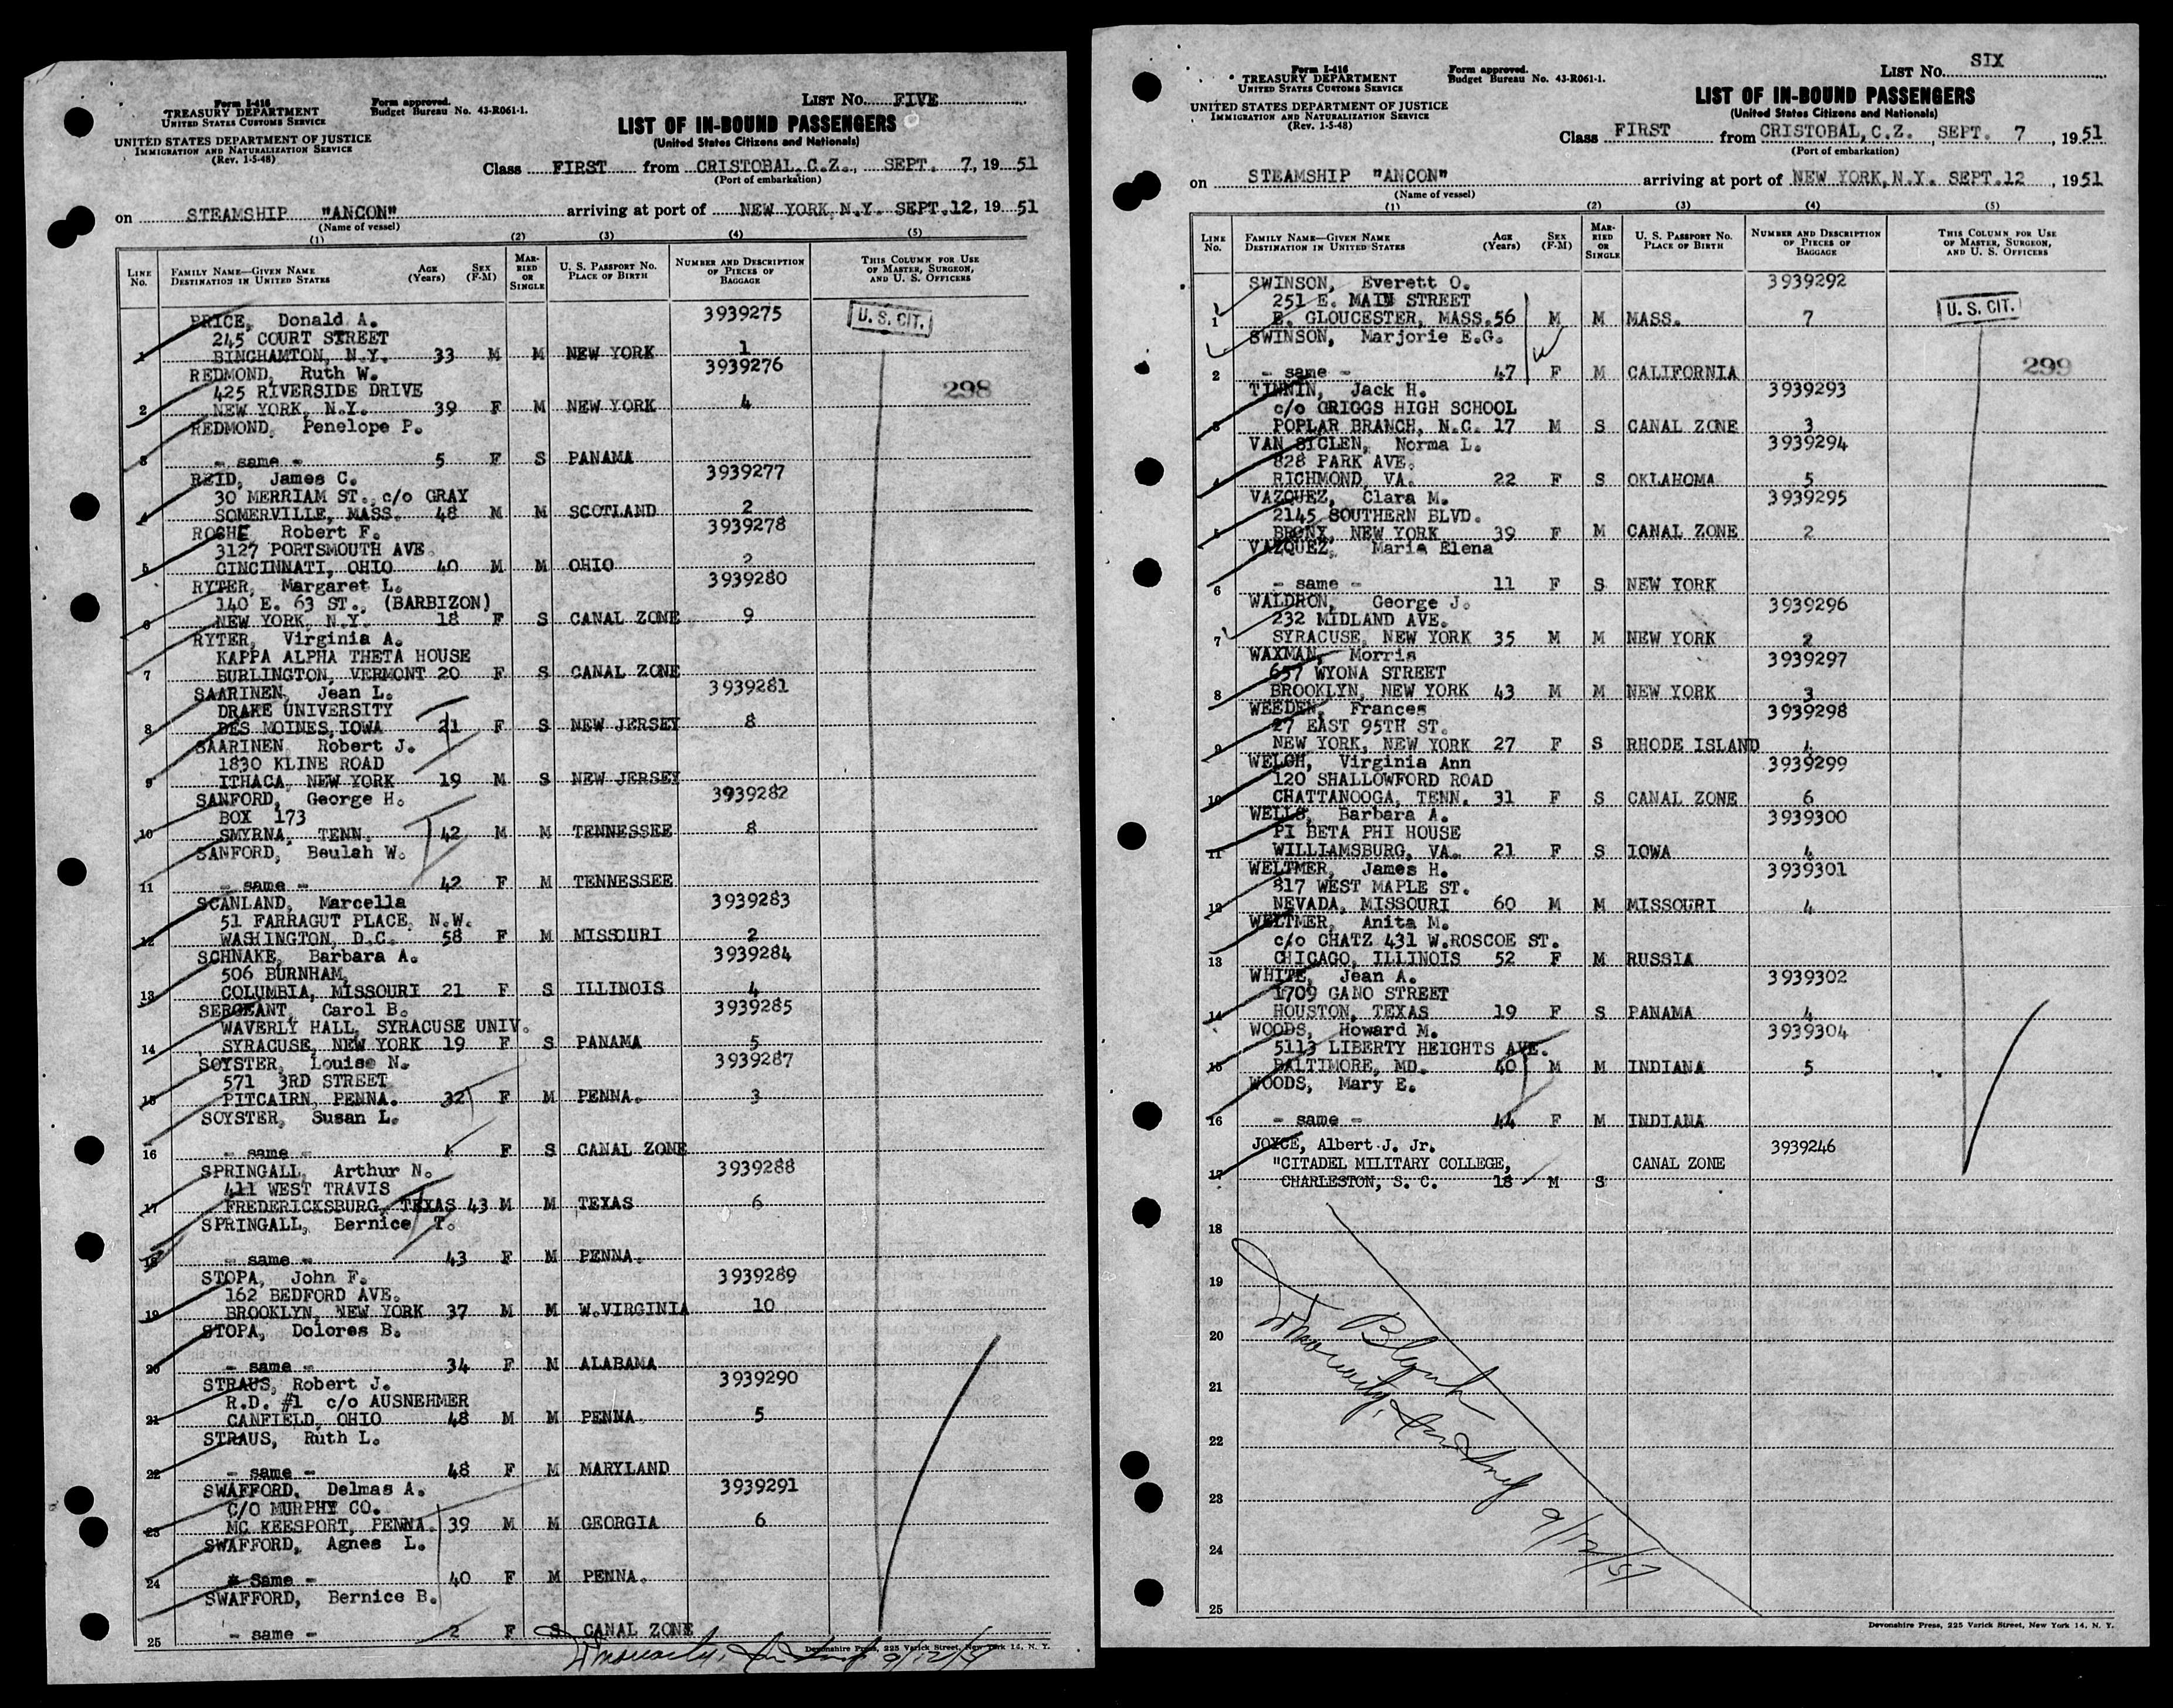 Form I-416
TREASURY DEPARTMENT
UNITED STATES CUSTOMS SERVICE
UNITED STATES DEPARTMENT OF JUSTICE
IMMIGRATION AND NATURALIZATION SERVICE
(Rev. 1-5-48)
Form approved.
Budget Bureau No. 43-R061-1.
LIST No. FIVE
LIST OF IN-BOUND PASSENGERS
(United States Citizens and Nationals)
Class FIRST from CRISTOBAL, C.Z., SEPT. 7, 19 51
(Port of embarkation)
on STEAMSHIP "ANCON" arriving at port of NEW YORK, N.Y. SEPT.12, 19 51
(Name of vessel)
(1) (2) (3) (4) (5)
LINE No. FAMILY NAME—GIVEN NAME DESTINATION IN UNITED STATES AGE (Years) SEX (F-M) MARRIED OR SINGLE U. S. PASSPORT No. PLACE OF BIRTH NUMBER AND DESCRIPTION OF PIECES OF BAGGAGE THIS COLUMN FOR USE OF MASTER, SURGEON, AND U. S. OFFICERS
U. S. CIT.
298
PRICE, Donald A. 3939275
245 COURT STREET
1 BINGHAMTON, N.Y. 33 M M NEW YORK 1
REDMOND, Ruth W. 3939276
425 RIVERSIDE DRIVE
2 NEW YORK, N.Y. 39 F M NEW YORK 4
REDMOND, Penelope P.
3 - same - 5 F S PANAMA
REID, James C. 3939277
30 MERRIAM ST., c/o GRAY
4 SOMERVILLE, MASS. 48 M M SCOTLAND 2
ROCHE Robert F. 3939278
3127 PORTSMOUTH AVE.
5 CINCINNATI, OHIO 40 M M OHIO 2
RYTER, Margaret L. 3939280
140 E. 63 ST., (BARBIZON)
6 NEW YORK, N.Y. 18 F S CANAL ZONE 9
RYTER, Virginia A.
KAPPA ALPHA THETA HOUSE
7 BURLINGTON, VERMONT 20 F S CANAL ZONE
SAARINEN, Jean L. 3939281
DRAKE UNIVERSITY
8 DES MOINES, IOWA 21 F S NEW JERSEY 8
SAARINEN, Robert J.
1830 KLINE ROAD
9 ITHACA, NEW YORK 19 M S NEW JERSEY
SANFORD, George H. 3939282
BOX 173
10 SMYRNA, TENN. 42 M M TENNESSEE 8
SANFORD, Beulah W.
11 - same - 42 F M TENNESSEE
SCANLAND, Marcella 3939283
51 FARRAGUT PLACE, N.W.
12 WASHINGTON, D.C. 58 F M MISSOURI 2
SCHNAKE, Barbara A. 3939284
506 BURNHAM,
13 COLUMBIA, MISSOURI 21 F S ILLINOIS 4
SERGEANT, Carol B. 3939285
WAVERLY HALL, SYRACUSE UNIV.
14 SYRACUSE, NEW YORK 19 F S PANAMA 5
SOYSTER, Louise N. 3939287
571 3RD STREET
15 PITCAIRN, PENNA. 32 F M PENNA. 3
SOYSTER, Susan L.
16 - same - F S CANAL ZONE
SPRINGALL, Arthur N. 3939288
411 WEST TRAVIS
17 FREDERICKSBURG, TEXAS 43 M M TEXAS 6
SPRINGALL, Bernice T.
18 - same - 43 F M PENNA.
STOPA, John F. 3939289
162 BEDFORD AVE.
19 BROOKLYN, NEW YORK 37 M M W.VIRGINIA 10
STOPA, Dolores B.
20 - same - 34 F M ALABAMA
STRAUS, Robert J. 3939290
R.D. #1 c/o AUSNEHMER
21 CANFIELD, OHIO 48 M M PENNA. 5
STRAUS, Ruth L.
22 - same - 48 F M MARYLAND
SWAFFORD, Delmas A. 3939291
C/O MURPHY CO.
23 MC KEESPORT, PENNA. 39 M M GEORGIA 6
SWAFFORD, Agnes L.
24 - Same - 40 F M PENNA.
SWAFFORD, Bernice B.
25 - same - 2 F S CANAL ZONE
Devonshire Press, 225 Varick Street, New York 14, N. Y.
9/12/51
Form I-416
TREASURY DEPARTMENT
UNITED STATES CUSTOMS SERVICE
UNITED STATES DEPARTMENT OF JUSTICE
IMMIGRATION AND NATURALIZATION SERVICE
(Rev. 1-5-48)
Form approved.
Budget Bureau No. 43-R061-1.
LIST No. SIX
LIST OF IN-BOUND PASSENGERS
(United States Citizens and Nationals)
Class FIRST from CRISTOBAL, C.Z., SEPT. 7, 1951
(Port of embarkation)
on STEAMSHIP "ANCON" arriving at port of NEW YORK, N.Y. SEPT.12, 1951
(Name of vessel)
(1) (2) (3) (4) (5)
LINE No. FAMILY NAME—GIVEN NAME DESTINATION IN UNITED STATES AGE (Years) SEX (F-M) MARRIED OR SINGLE U. S. PASSPORT No. PLACE OF BIRTH NUMBER AND DESCRIPTION OF PIECES OF BAGGAGE THIS COLUMN FOR USE OF MASTER, SURGEON, AND U. S. OFFICERS
U. S. CIT.
299
SWINSON, Everett O. 3939292
251 E. MAIN STREET
1 E. GLOUCESTER, MASS. 56 M M MASS. 7
SWINSON, Marjorie E.G.
2 - same - 47 F M CALIFORNIA
TINNIN, Jack H. 3939293
c/o GRIGGS HIGH SCHOOL
3 POPLAR BRANCH, N.C. 17 M S CANAL ZONE 3
VAN SICLEN, Norma L. 3939294
828 PARK AVE.
4 RICHMOND, VA. 22 F S OKLAHOMA 5
VAZQUEZ, Clara M. 3939295
2145 SOUTHERN BLVD.
5 BRONX, NEW YORK 39 F M CANAL ZONE 2
VAZQUEZ, Maria Elena
6 - same - 11 F S NEW YORK
WALDRON, George J. 3939296
232 MIDLAND AVE.
7 SYRACUSE, NEW YORK 35 M M NEW YORK 2
WAXMAN, Morris 3939297
657 WYONA STREET
8 BROOKLYN, NEW YORK 43 M M NEW YORK 3
WEEDEN, Frances 3939298
27 EAST 95TH ST.
9 NEW YORK, NEW YORK 27 F S RHODE ISLAND 4
WELCH, Virginia Ann 3939299
120 SHALLOWFORD ROAD
10 CHATTANOOGA, TENN. 31 F S CANAL ZONE 6
WELLS, Barbara A. 3939300
PI BETA PHI HOUSE
11 WILLIAMSBURG, VA. 21 F S IOWA 4
WELTMER, James H. 3939301
817 WEST MAPLE ST.
12 NEVADA, MISSOURI 60 M M MISSOURI 4
WELTMER, Anita M.
c/o CHATZ 431 W.ROSCOE ST.
13 CHICAGO, ILLINOIS 52 F M RUSSIA
WHITE, Jean A. 3939302
1709 GANO STREET
14 HOUSTON, TEXAS 19 F S PANAMA 4
WOODS, Howard M. 3939304
5113 LIBERTY HEIGHTS AVE.
15 BALTIMORE, MD. 40 M M INDIANA 5
WOODS, Mary E.
16 - same - 44 F M INDIANA
JOYCE, Albert J. Jr. 3939246
"CITADEL MILITARY COLLEGE, CANAL ZONE
17 CHARLESTON, S. C. 18 M S
18
19
20
21
22
23
24
25
Blank
9/12/51
Devonshire Press, 225 Varick Street, New York 14, N. Y.